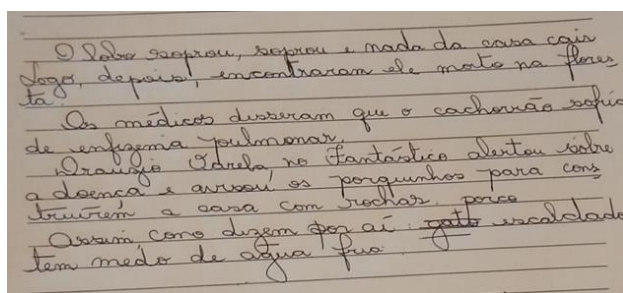 O Lobo soprou, soprou e nada da casa cair
Logo, depois, encontraram ele morto na flores
ta.
Os médicos disseram que o cachorrão sofria
de enfizema pulmonar.
Drauzio Varela, no Fantástico alertou sobre
a doença e avisou os porquinhos para cons
truírem a casa com rochas. porco
Assim, como dizem por aí: gato escaldado
tem medo de agua fria.